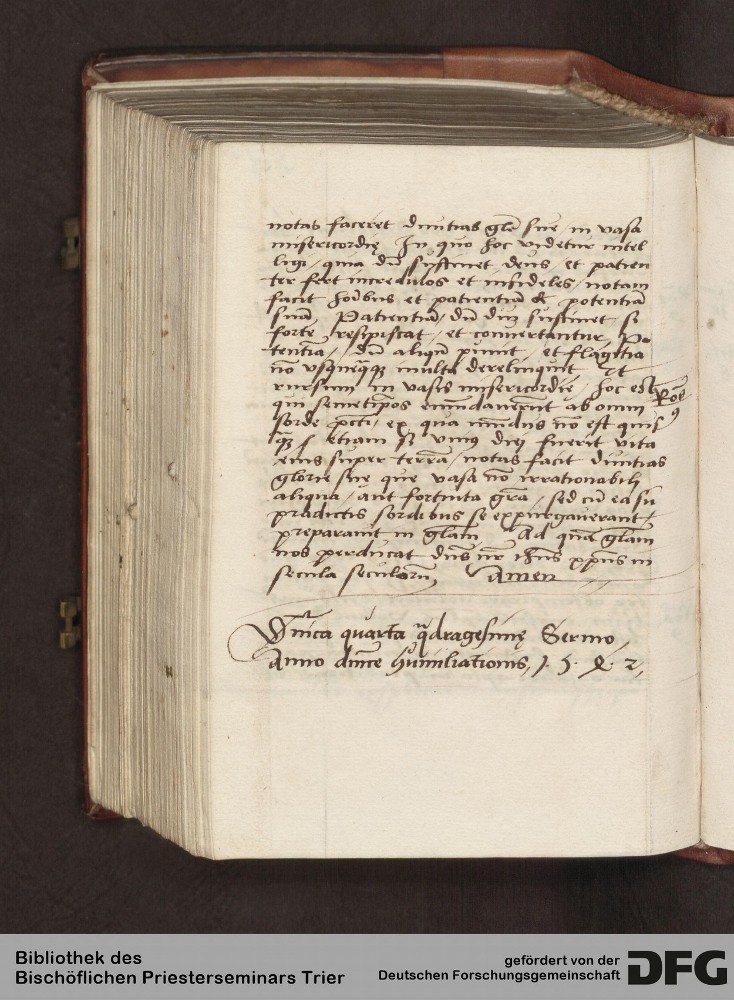 notas faceret diuitias glē sue, in vasa
misericordię In quo hoc videtur intel
ligi, quia dū sustinet deus et patien
ter fert incredulos et infideles, notam
facit hōibus et patientiā & potentiā
suā, Patientiā, dū diu sustinet si
forte, resipiscat, et conuertantur, Po
tentia, dū aliqn̄ punit, et flagitia
nō vsquequaque multa derelinquit Et
rursum in vasis misericordie, hoc est
qui semetipos emūdauerunt ab omni
Rōē
9
sorde pcti, ex qua mūdus nō est quis
etiam si vnius diei fuerit vita
eius super terrā, notas facit diuitias
glorie sue que vasa nō irrationabili
aliqua, aut fortuita gra, sed cū ea sū
pradictis sordibus se expurgauerant,
preparauit in glam Ad quā glam
nos perducat dn̄s nr ihūs xpus in
secula seculorū, Amen
Dn̄ica quarta qdragesimę Sermo,
Anno dnice humiliationis, 1. 5. 2,
Bibliothek des
Bischöflichen Priesterseminars Trier
gefördert von der
Deutschen Forschungsgemeinschaft
DFG